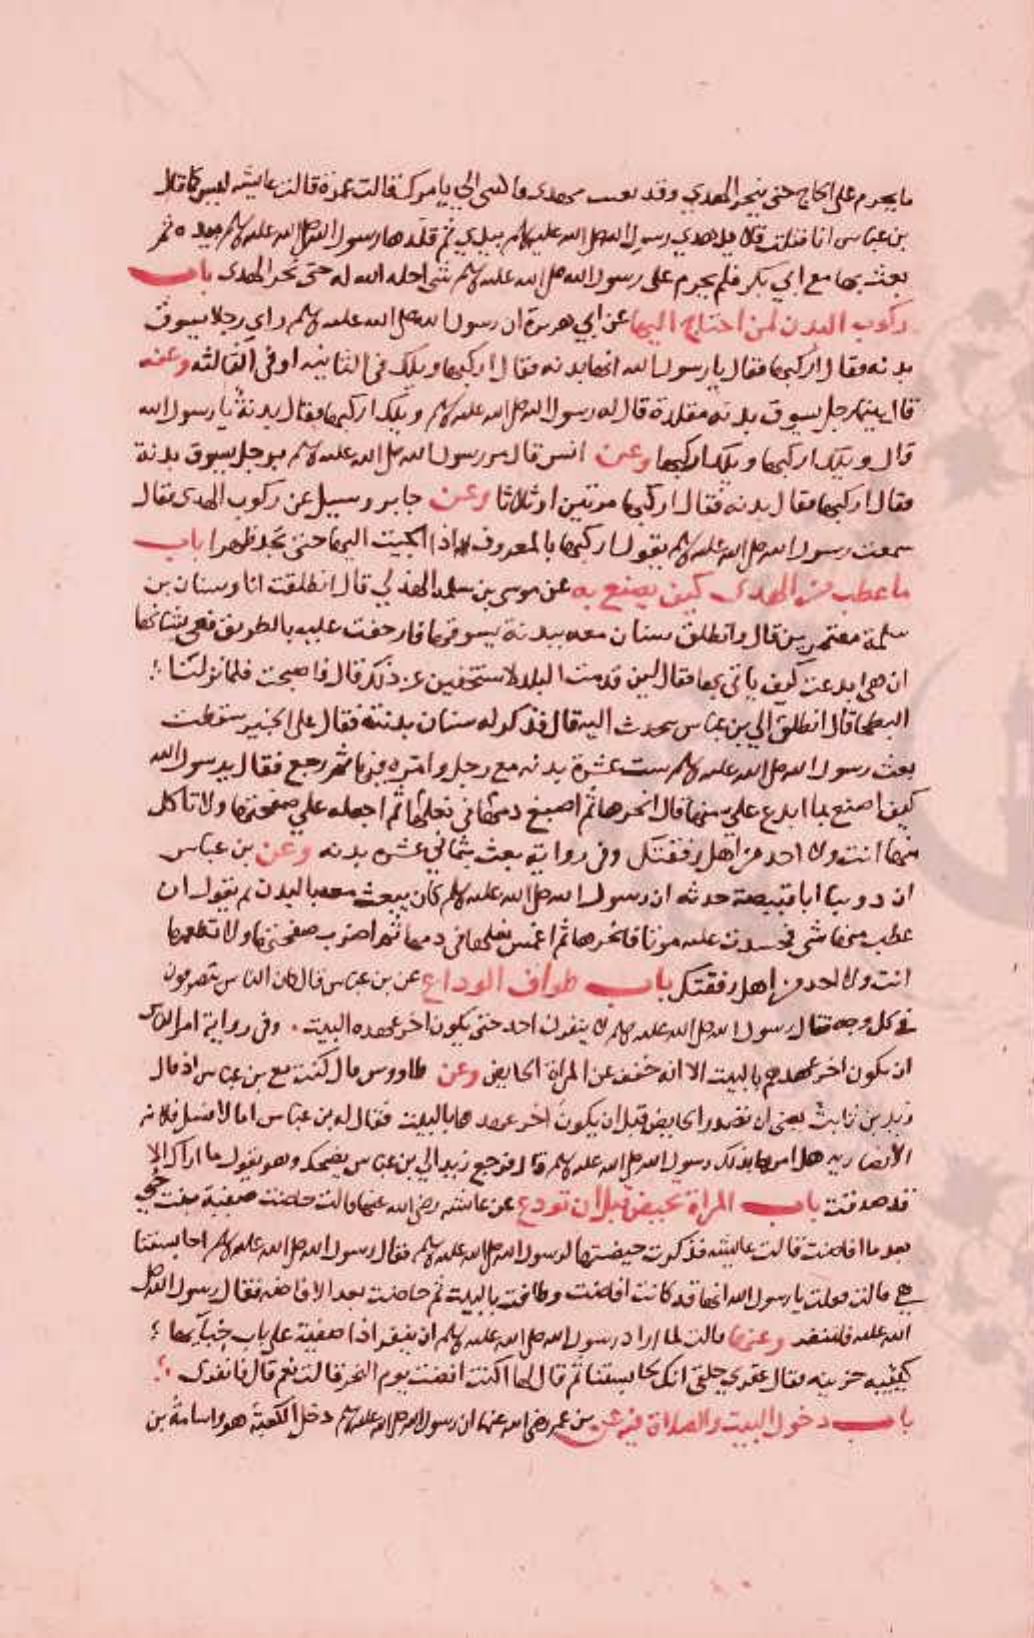 ما يحرم على الحاج حتى ينحر الهدي وقد بعثت بهدي فاكتبي الي بامرك فقالت عمرة قالت عايشه ليس كما قال
بن عباس انا فتلت قلايد هدي رسول الله صلى الله عليه وسلم بيدي ثم قلدها رسول الله صلى الله عليه وسلم بيده ثم
بعث بها مع ابي بكر فلم يحرم على رسول الله صلى الله عليه وسلم شي احله الله له حتى نحر الهدى باب
ركوب البدن لمن احتاج اليها عن ابي هريرة ان رسول الله صلى الله عليه وسلم راى رجلا يسوق
بدنه فقال اركبها فقال يا رسول الله انها بدنه فقال اركبها ويلك في الثانيه او في الثالثه وعنه
قال بينما رجل يسوق بدنه مقلدة قال له رسول الله صلى الله عليه وسلم ويلك اركبها فقال بدنة يا رسول الله
قال ويلك اركبها ويلك اركبها وعن انس قال مر رسول الله صلى الله عليه وسلم برجل يسوق بدنة
فقال اركبها فقال بدنه فقال اركبها مرتين او ثلاثا وعن جابر وسيل عن ركوب الهدى فقال
سمعت رسول الله صلى الله عليه وسلم يقول اركبها بالمعروف اذا الجيت اليها حتى تجد ظهرا باب
ما عطب من الهدى كيف يصنع به عن موسى بن سلمه الهذلي قال انطلقت انا وسنان بن
سلمة معتمرين قال وانطلق سنان معه ببدنة يسوقها فازحفت عليه بالطريق فعي بشانها
ان هي ابدعت كيف ياتي بها فقال لين قدمت البلد لاستحفين عن ذلك قال فاصبحت فلما نزلنا
البطحا قال انطلق الي بن عباس نتحدث اليه قال فذكر له سنان بدنته فقال على الخبير سقطت
بعث رسول الله صلى الله عليه وسلم ست عشرة بدنه مع رجل وامره فيها ثم رجع فقال يرسول الله
كيف اصنع بما ابدع علي منها قال انحرها ثم اصبغ دمها في نعلها ثم اجعله علي صفحتها ولا تاكل
منها انت ولا احد من اهل رفقتك وفي رواية بعث بثماني عشره بدنه وعن بن عباس
ان دويبا ابا قبيصة حدثه ان رسول الله صلى الله عليه وسلم كان يبعث معه بالبدن ثم يقول ان
عطب منها شي فخشيت عليه موتا فانحرها ثم اغمس نعلها في دمها ثم اضرب صفحتها ولا تطعمها
انت ولا احد من اهل رفقتك باب طواف الوداع عن بن عباس قال كان الناس يتصرفون
في كل وجه فقال رسول الله صلى الله عليه وسلم لا ينفرن احد حتى يكون اخر عهده بالبيت . وفي رواية امر الناس
ان يكون اخر عهدهم بالبيت الا انه خفف عن المراة الحايض وعن طاووس قال كنت مع بن عباس اذ قال
زيد بن ثابت تفتي ان تصدر الحايض قبل ان يكون اخر عهدها بالبيت فقال له بن عباس اما لا فسل فلانه
الانصاريه هل امرها بذلك رسول الله صلى الله عليه وسلم قال فرجع زيد الي بن عباس يضحك وهو يقول ما اراك الا
قد صدقت باب المراة تحيض قبل ان تودع عن عايشه رضي الله عنها قالت حاضت صفية بنت حيي
بعد ما افاضت قالت عايشه فذكرت حيضتها لرسول الله صلى الله عليه وسلم فقال رسول الله صلى الله عليه وسلم احابستنا
هي قالت فقلت يا رسول الله انها قد كانت افاضت وطافت بالبيت ثم حاضت بعد الافاضه فقال رسول الله صلى
الله عليه فلتنفر وعنها قالت لما اراد رسول الله صلى الله عليه وسلم ان ينفر اذا صفية على باب خبايها
كئيبه حزينه فقال عقرى حلقى انك لحابستنا ثم قال لها اكنت افضت يوم النحر قالت نعم قال فانفرى
باب دخول البيت والصلاة فيه عن بن عمر رضي الله عنهما ان رسول الله صلى الله عليه وسلم دخل الكعبة هو واسامة بن